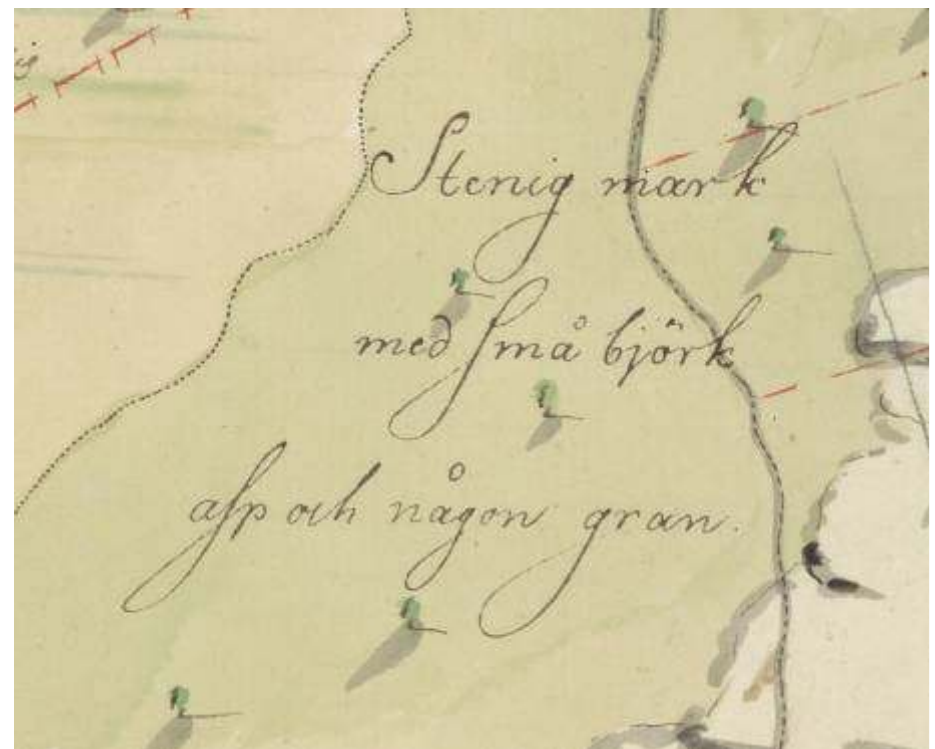 Stenig mark
med små björk
asp och någon gran.